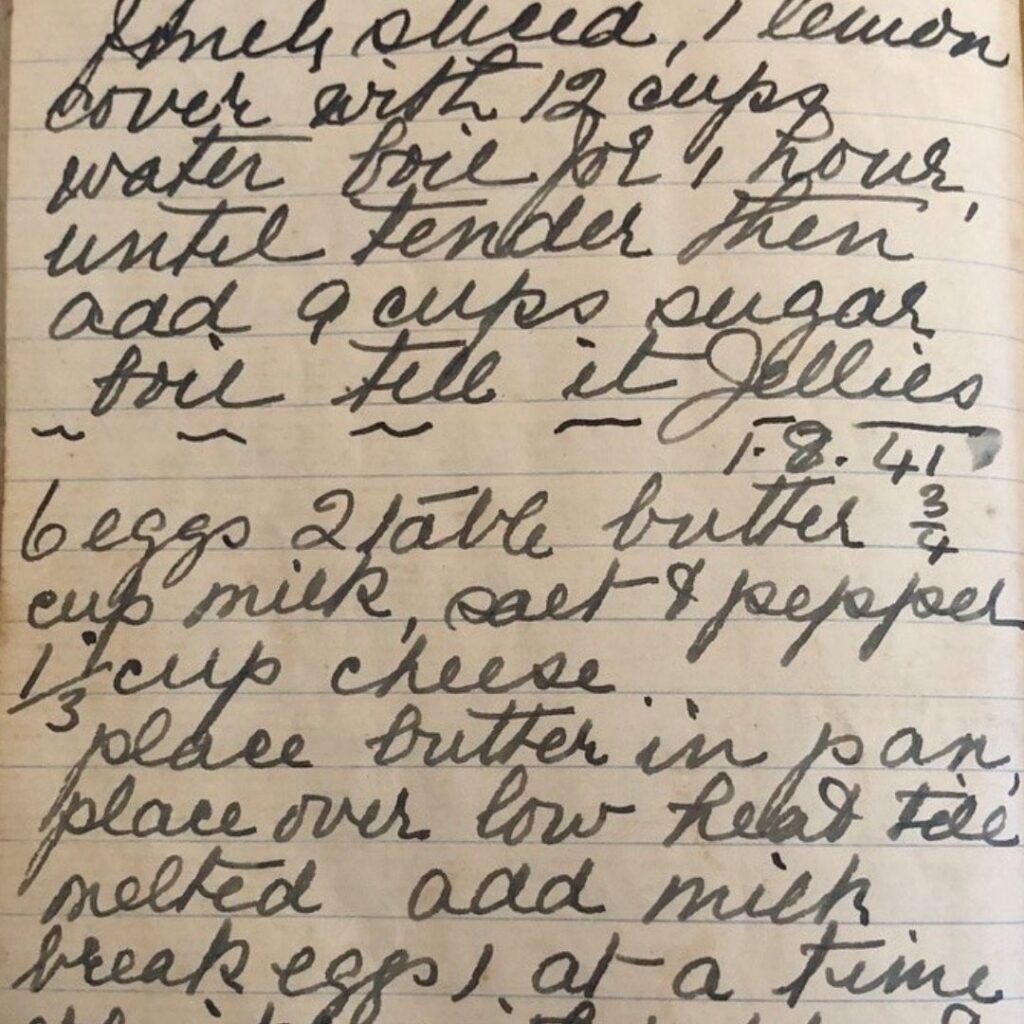 finely sliced, 1 lemon
cover with 12 cups
water boil for 1 hour,
until tender then
add 9 cups sugar
boil till it Jellies
1.8.41
6 eggs 2 table butter 3/4
cup milk, salt & pepper
1/3 cup cheese
place butter in pan,
place over low heat till
melted add milk
break eggs 1 at a time